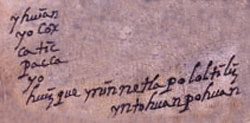 yhuan
yo cox
ca tic
pacca
yo
huizque ynin netla pololtiliz
yntohuan pohuan